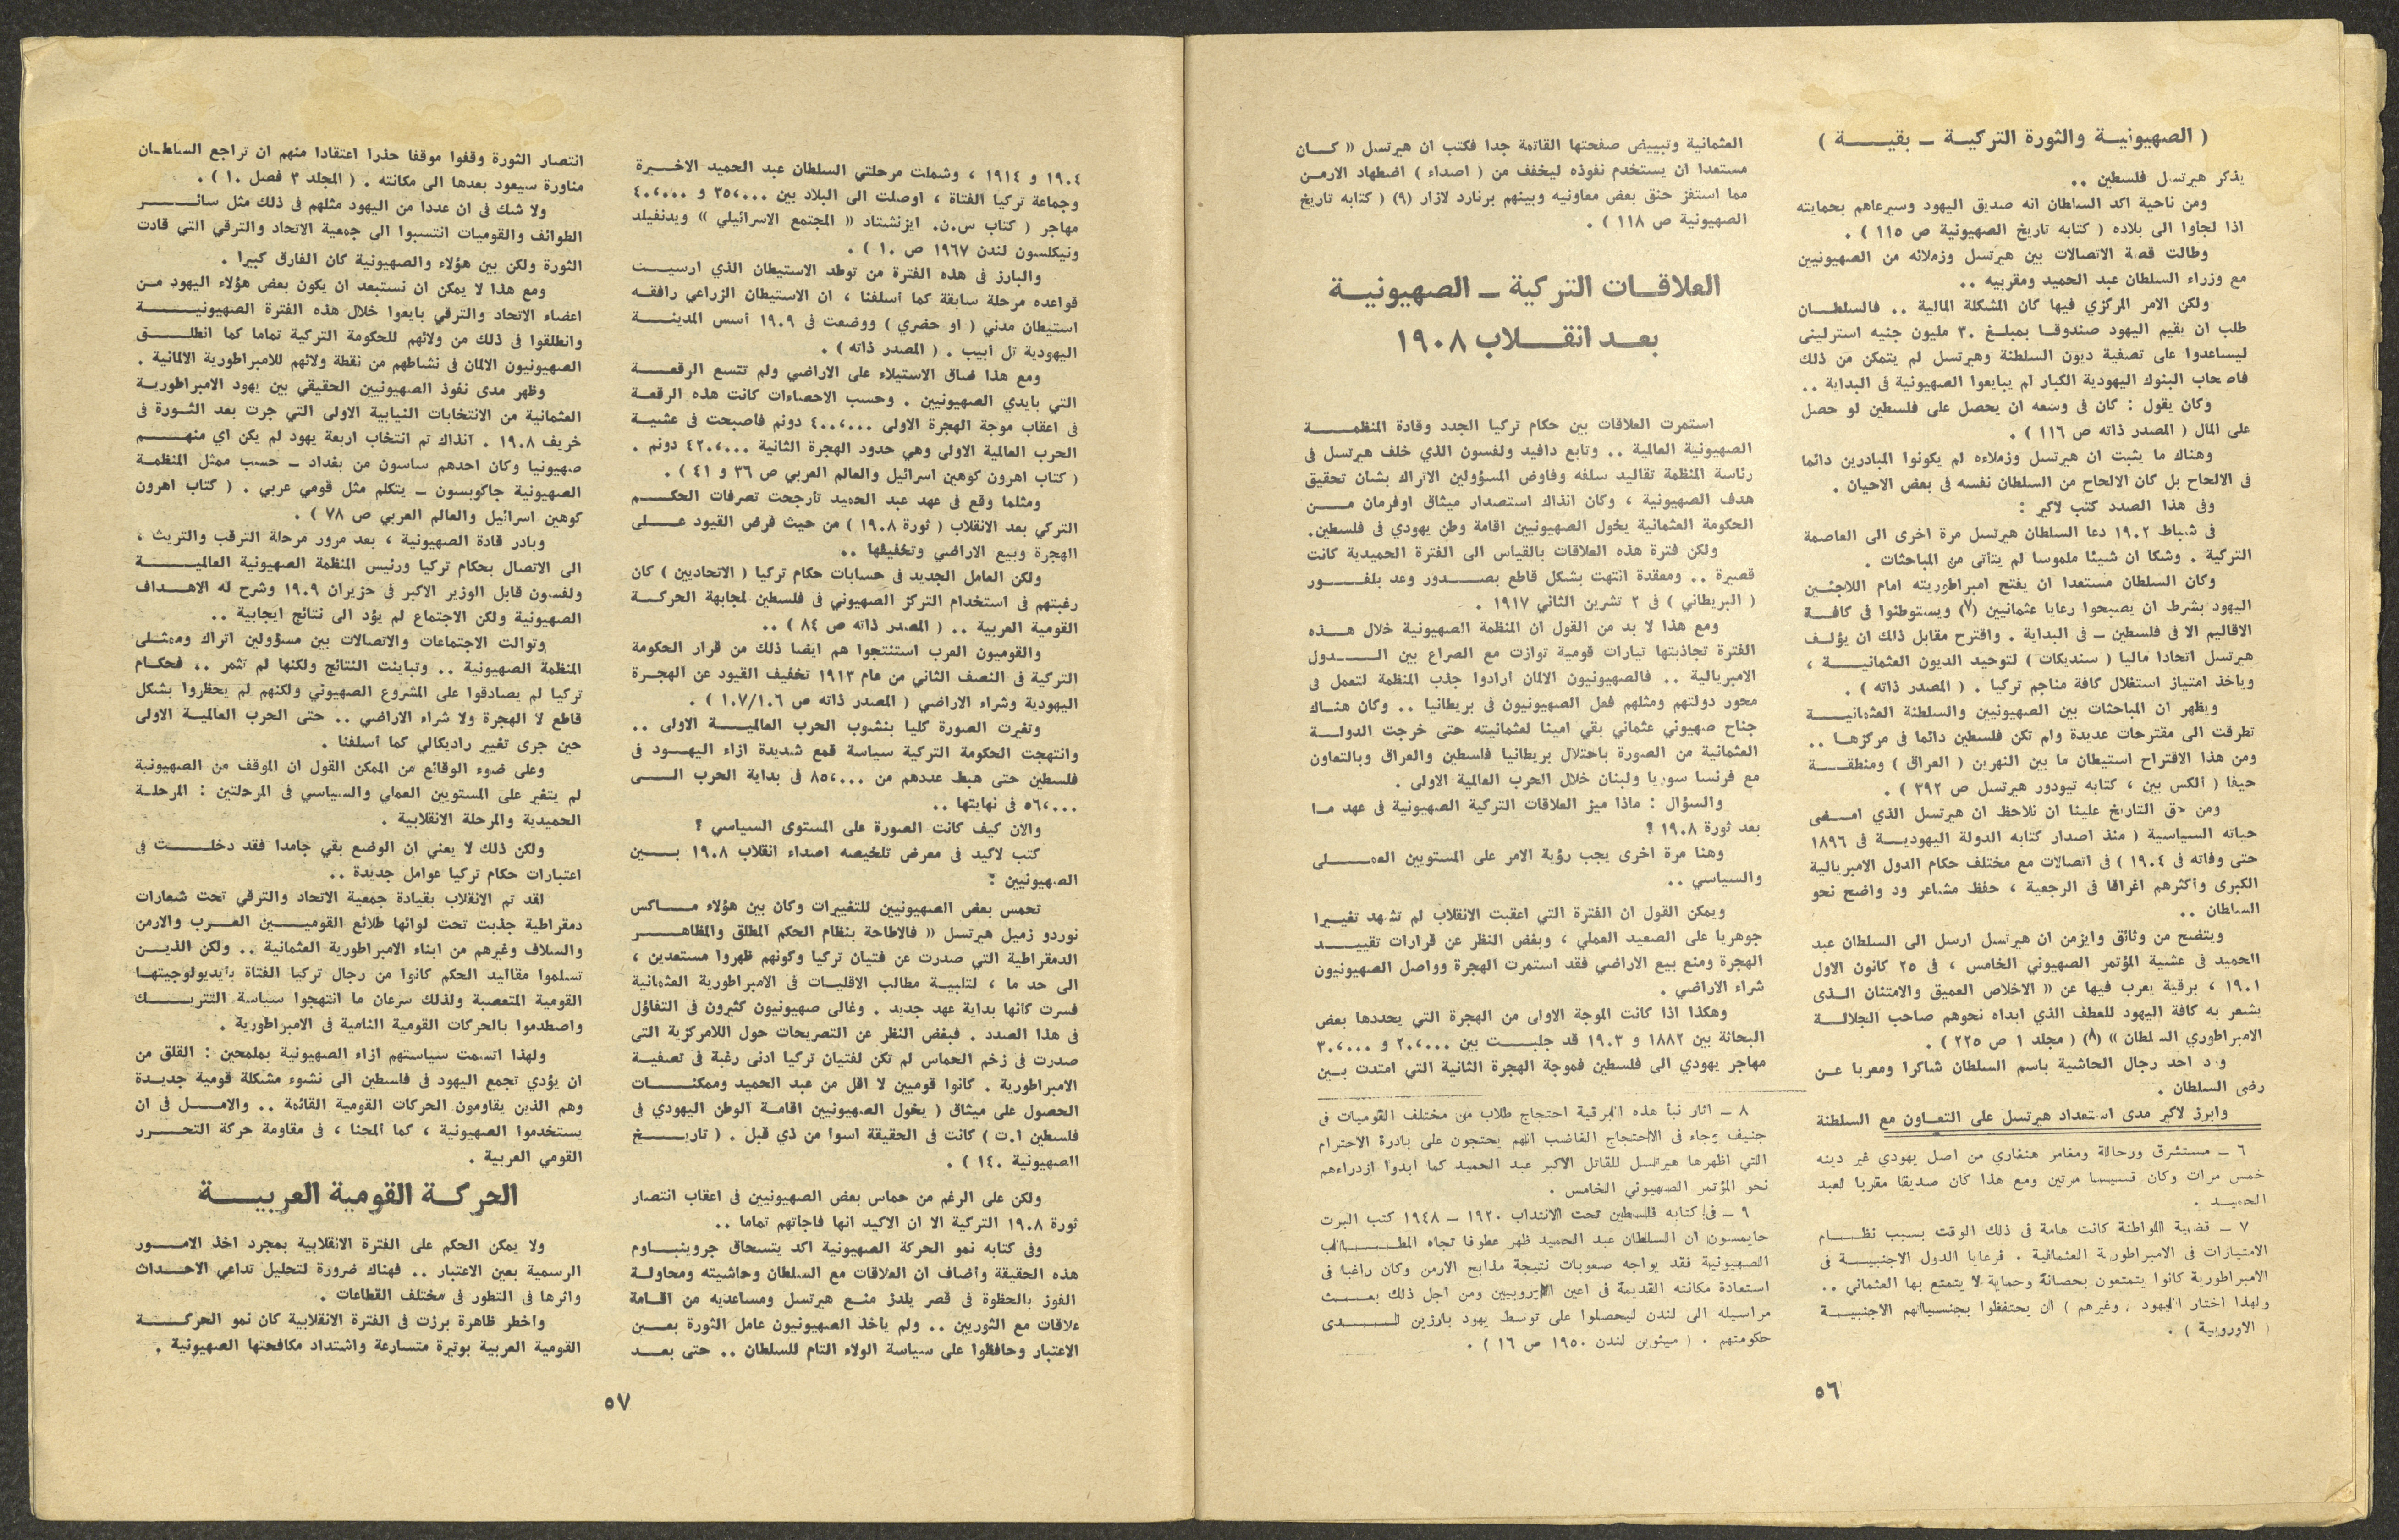 ( الصهيونية والثورة التركية ــ بقية )
يذكر هيرتسل فلسطين ..
ومن ناحية اكد السلطان انه صديق اليهود وسيرعاهم بحمايته
اذا لجاوا الى بلاده ( كتابه تاريخ الصهيونية ص ١١٥ ) .
وطالت قصة الاتصالات بين هيرتسل وزملائه من الصهيونيين
مع وزراء السلطان عبد الحميد ومقربيه ..
ولكن الامر المركزي فيها كان المشكلة المالية .. فالسلطان
طلب ان يقيم اليهود صندوقا بمبلغ ٣٠ مليون جنيه استرليني
ليساعدوا على تصفية ديون السلطنة وهيرتسل لم يتمكن من ذلك
فاصحاب البنوك اليهودية الكبار لم يبايعوا الصهيونية في البداية ..
وكان يقول : كان في وسعه ان يحصل على فلسطين لو حصل
على المال ( المصدر ذاته ص ١١٦ ) .
وهناك ما يثبت ان هيرتسل وزملاءه لم يكونوا المبادرين دائما
في الالحاح بل كان الالحاح من السلطان نفسه في بعض الاحيان .
وفي هذا الصدد كتب لاكير :
في شباط ١٩٠٢ دعا السلطان هيرتسل مرة اخرى الى العاصمة
التركية . وشكا ان شيئا ملموسا لم يتاتى من المباحثات .
وكان السلطان مستعدا ان يفتح امبراطوريته امام اللاجئين
اليهود بشرط ان يصبحوا رعايا عثمانيين (٧) ويستوطنوا في كافة
الاقاليم الا في فلسطين ــ في البداية . واقترح مقابل ذلك ان يؤلف
هيرتسل اتحادا ماليا ( سنديكات ) لتوحيد الديون العثمانية ،
وياخذ امتياز استغلال كافة مناجم تركيا . ( المصدر ذاته ) .
ويظهر ان المباحثات بين الصهيونيين والسلطنة العثمانية
تطرقت الى مقترحات عديدة ولم تكن فلسطين دائما في مركزها ..
ومن هذا الاقتراح استيطان ما بين النهرين ( العراق ) ومنطقة
حيفا ( الكس بين ، كتابه تيودور هيرتسل ص ٣٩٢ ) .
ومن حق التاريخ علينا ان نلاحظ ان هيرتسل الذي امضى
حياته السياسية ( منذ اصدار كتابه الدولة اليهودية في ١٨٩٦
حتى وفاته في ١٩٠٤ ) في اتصالات مع مختلف حكام الدول الامبريالية
الكبرى واكثرهم اغراقا في الرجعية ، حفظ مشاعر ود واضح نحو
السلطان ..
ويتضح من وثائق وايزمن ان هيرتسل ارسل الى السلطان عبد
الحميد في عشية المؤتمر الصهيوني الخامس ، في ٢٥ كانون الاول
١٩٠١ ، برقية يعرب فيها عن « الاخلاص العميق والامتنان الذى
يشعر به كافة اليهود للعطف الذي ابداه نحوهم صاحب الجلالة
الامبراطوري السلطان » (٨) ( مجلد ١ ص ٢٢٥ ) .
ورد احد رجال الحاشية باسم السلطان شاكرا ومعربا عن
رضى السلطان .
وابرز لاكير مدى استعداد هيرتسل على التعاون مع السلطنة
٦ ــ مستشرق ورحالة ومغامر هنغاري من اصل يهودي غير دينه
خمس مرات وكان قسيسا مرتين ومع هذا كان صديقا مقربا لعبد
الحميد .
٧ ــ قضية المواطنة كانت هامة في ذلك الوقت بسبب نظام
الامتيازات في الامبراطورية العثمانية . فرعايا الدول الاجنبية في
الامبراطورية كانوا يتمتعون بحصانة وحماية لا يتمتع بها العثماني ..
ولهذا اختار اليهود ( وغيرهم ) ان يحتفظوا بجنسياتهم الاجنبية
( الاوروبية ) .
العثمانية وتبييض صفحتها القاتمة جدا فكتب ان هيرتسل « كان
مستعدا ان يستخدم نفوذه ليخفف من ( اصداء ) اضطهاد الارمن
مما استفز حنق بعض معاونيه وبينهم برنارد لازار (٩) ( كتابه تاريخ
الصهيونية ص ١١٨ ) .
العلاقات التركية ــ الصهيونية
بعد انقلاب ١٩٠٨
استمرت العلاقات بين حكام تركيا الجدد وقادة المنظمة
الصهيونية العالمية .. وتابع دافيد ولفسون الذي خلف هيرتسل في
رئاسة المنظمة تقاليد سلفه وفاوض المسؤولين الاتراك بشان تحقيق
هدف الصهيونية ، وكان انذاك استصدار ميثاق اوفرمان من
الحكومة العثمانية يخول الصهيونيين اقامة وطن يهودي في فلسطين.
ولكن فترة هذه العلاقات بالقياس الى الفترة الحميدية كانت
قصيرة .. ومعقدة انتهت بشكل قاطع بصدور وعد بلفور
( البريطاني ) في ٢ تشرين الثاني ١٩١٧ .
ومع هذا لا بد من القول ان المنظمة الصهيونية خلال هذه
الفترة تجاذبتها تيارات قومية توازت مع الصراع بين الدول
الامبريالية .. فالصهيونيون الالمان ارادوا جذب المنظمة لتعمل في
محور دولتهم ومثلهم فعل الصهيونيون في بريطانيا .. وكان هناك
جناح صهيوني عثماني بقي امينا لعثمانيته حتى خرجت الدولة
العثمانية من الصورة باحتلال بريطانيا فلسطين والعراق وبالتعاون
مع فرنسا سوريا ولبنان خلال الحرب العالمية الاولى .
والسؤال : ماذا ميز العلاقات التركية الصهيونية في عهد ما
بعد ثورة ١٩٠٨ ؟
وهنا مرة اخرى يجب رؤية الامر على المستويين العملي
والسياسي ..
ويمكن القول ان الفترة التي اعقبت الانقلاب لم تشهد تغييرا
جوهريا على الصعيد العملي ، وبغض النظر عن قرارات تقييد
الهجرة ومنع بيع الاراضي فقد استمرت الهجرة وواصل الصهيونيون
شراء الاراضي .
وهكذا اذا كانت الموجة الاولى من الهجرة التي يحددها بعض
البحاثة بين ١٨٨٢ و ١٩٠٣ قد جلبت بين ٢٠٬٠٠٠ و ٣٠٬٠٠٠
مهاجر يهودي الى فلسطين فموجة الهجرة الثانية التي امتدت بين
٨ ــ اثار نبأ هذه البرقية احتجاج طلاب من مختلف القوميات في
جنيف وجاء في الاحتجاج الغاضب انهم يحتجون على بادرة الاحترام
التي اظهرها هيرتسل للقاتل الاكبر عبد الحميد كما ابدوا ازدراءهم
نحو المؤتمر الصهيوني الخامس .
٩ ــ في كتابه فلسطين تحت الانتداب ١٩٢٠ ــ ١٩٤٨ كتب البرت
حايمسون ان السلطان عبد الحميد ظهر عطوفا تجاه المطالب
الصهيونية فقد يواجه صعوبات نتيجة مذابح الارمن وكان راغبا في
استعادة مكانته القديمة في اعين الاوروبيين ومن اجل ذلك بعث
مراسيله الى لندن ليحصلوا على توسط يهود بارزين لدى
حكومتهم . ( ميثوين لندن ١٩٥٠ ص ١٦ ) .
٥٦
١٩٠٤ و ١٩١٤ ، وشملت مرحلتي السلطان عبد الحميد الاخيرة
وجماعة تركيا الفتاة ، اوصلت الى البلاد بين ٣٥٬٠٠٠ و ٤٠٬٠٠٠
مهاجر ( كتاب س.ن. ايزنشتاد « المجتمع الاسرائيلي » ويدنفيلد
ونيكلسون لندن ١٩٦٧ ص ١٠ ) .
والبارز في هذه الفترة من توطد الاستيطان الذي ارسيت
قواعده مرحلة سابقة كما اسلفنا ، ان الاستيطان الزراعي رافقه
استيطان مدني ( او حضري ) ووضعت في ١٩٠٩ اسس المدينة
اليهودية تل ابيب . ( المصدر ذاته ) .
ومع هذا ضاق الاستيلاء على الاراضي ولم تتسع الرقعة
التي بايدي الصهيونيين . وحسب الاحصاءات كانت هذه الرقعة
في اعقاب موجة الهجرة الاولى ٤٠٠٬٠٠٠ دونم فاصبحت في عشية
الحرب العالمية الاولى وهي حدود الهجرة الثانية ٤٢٠٬٠٠٠ دونم .
( كتاب اهرون كوهين اسرائيل والعالم العربي ص ٣٦ و ٤١ ) .
ومثلما وقع في عهد عبد الحميد تارجحت تصرفات الحكم
التركي بعد الانقلاب ( ثورة ١٩٠٨ ) من حيث فرض القيود على
الهجرة وبيع الاراضي وتخفيفها ..
ولكن العامل الجديد في حسابات حكام تركيا ( الاتحاديين ) كان
رغبتهم في استخدام التركز الصهيوني في فلسطين لمجابهة الحركة
القومية العربية .. ( المصدر ذاته ص ٨٤ ) ..
والقوميون العرب استنتجوا هم ايضا ذلك من قرار الحكومة
التركية في النصف الثاني من عام ١٩١٣ تخفيف القيود عن الهجرة
اليهودية وشراء الاراضي ( المصدر ذاته ص ١٠٧/١٠٦ ) .
وتغيرت الصورة كليا بنشوب الحرب العالمية الاولى ..
وانتهجت الحكومة التركية سياسة قمع شديدة ازاء اليهود في
فلسطين حتى هبط عددهم من ٨٥٬٠٠٠ في بداية الحرب الى
٥٦٬٠٠٠ في نهايتها ..
والان كيف كانت الصورة على المستوى السياسي ؟
كتب لاكيد في معرض تلخيصه اصداء انقلاب ١٩٠٨ بين
الصهيونيين :
تحمس بعض الصهيونيين للتغييرات وكان بين هؤلاء ماكس
نوردو زميل هيرتسل « فالاطاحة بنظام الحكم المطلق والمظاهر
الدمقراطية التي صدرت عن فتيان تركيا وكونهم ظهروا مستعدين ،
الى حد ما ، لتلبية مطالب الاقليات في الامبراطورية العثمانية
فسرت كانها بداية عهد جديد . وغالى صهيونيون كثيرون في التفاؤل
في هذا الصدد . فبغض النظر عن التصريحات حول اللامركزية التى
صدرت في زخم الحماس لم تكن لفتيان تركيا ادنى رغبة في تصفية
الامبراطورية . كانوا قوميين لا اقل من عبد الحميد وممكنات
الحصول على ميثاق ( يخول الصهيونيين اقامة الوطن اليهودي في
فلسطين ا.ت ) كانت في الحقيقة اسوا من ذي قبل . ( تاريخ
الصهيونية ١٤٠ ) .
ولكن على الرغم من حماس بعض الصهيونيين في اعقاب انتصار
ثورة ١٩٠٨ التركية الا ان الاكيد انها فاجاتهم تماما ..
وفي كتابه نمو الحركة الصهيونية اكد يتسحاق جروينباوم
هذه الحقيقة واضاف ان العلاقات مع السلطان وحاشيته ومحاولة
الفوز بالحظوة في قصر يلدز منع هيرتسل ومساعديه من اقامة
علاقات مع الثوريين .. ولم ياخذ الصهيونيون عامل الثورة بعين
الاعتبار وحافظوا على سياسة الولاء التام للسلطان .. حتى بعد
انتصار الثورة وقفوا موقفا حذرا اعتقادا منهم ان تراجع السلطان
مناورة سيعود بعدها الى مكانته . ( المجلد ٣ فصل ١٠ ) .
ولا شك في ان عددا من اليهود مثلهم في ذلك مثل سائر
الطوائف والقوميات انتسبوا الى جمعية الاتحاد والترقي التي قادت
الثورة ولكن بين هؤلاء والصهيونية كان الفارق كبيرا .
ومع هذا لا يمكن ان نستبعد ان يكون بعض هؤلاء اليهود من
اعضاء الاتحاد والترقي بايعوا خلال هذه الفترة الصهيونية
وانطلقوا في ذلك من ولائهم للحكومة التركية تماما كما انطلق
الصهيونيون الالمان في نشاطهم من نقطة ولائهم للامبراطورية الالمانية .
وظهر مدى نفوذ الصهيونيين الحقيقي بين يهود الامبراطورية
العثمانية من الانتخابات النيابية الاولى التي جرت بعد الثورة في
خريف ١٩٠٨ . انذاك تم انتخاب اربعة يهود لم يكن اي منهم
صهيونيا وكان احدهم ساسون من بغداد ــ حسب ممثل المنظمة
الصهيونية جاكوبسون ــ يتكلم مثل قومي عربي . ( كتاب اهرون
كوهين اسرائيل والعالم العربي ص ٧٨ ) .
وبادر قادة الصهيونية ، بعد مرور مرحلة الترقب والتريث ،
الى الاتصال بحكام تركيا ورئيس المنظمة الصهيونية العالمية
ولفسون قابل الوزير الاكبر في حزيران ١٩٠٩ وشرح له الاهداف
الصهيونية ولكن الاجتماع لم يؤد الى نتائج ايجابية ..
وتوالت الاجتماعات والاتصالات بين مسؤولين اتراك وممثلي
المنظمة الصهيونية .. وتباينت النتائج ولكنها لم تثمر .. فحكام
تركيا لم يصادقوا على المشروع الصهيوني ولكنهم لم يحظروا بشكل
قاطع لا الهجرة ولا شراء الاراضي .. حتى الحرب العالمية الاولى
حين جرى تغيير راديكالي كما اسلفنا .
وعلى ضوء الوقائع من الممكن القول ان الموقف من الصهيونية
لم يتغير على المستويين العملي والسياسي في المرحلتين : المرحلة
الحميدية والمرحلة الانقلابية .
ولكن ذلك لا يعني ان الوضع بقي جامدا فقد دخلت في
اعتبارات حكام تركيا عوامل جديدة ..
لقد تم الانقلاب بقيادة جمعية الاتحاد والترقي تحت شعارات
دمقراطية جذبت تحت لوائها طلائع القوميين العرب والارمن
والسلاف وغيرهم من ابناء الامبراطورية العثمانية .. ولكن الذين
تسلموا مقاليد الحكم كانوا من رجال تركيا الفتاة بايديولوجيتها
القومية المتعصبة ولذلك سرعان ما انتهجوا سياسة التتريك
واصطدموا بالحركات القومية النامية في الامبراطورية .
ولهذا اتسمت سياستهم ازاء الصهيونية بملمحين : القلق من
ان يؤدي تجمع اليهود في فلسطين الى نشوء مشكلة قومية جديدة
وهم الذين يقاومون الحركات القومية القائمة .. والامل في ان
يستخدموا الصهيونية ، كما المحنا ، في مقاومة حركة التحرر
القومي العربية .
الحركة القومية العربية
ولا يمكن الحكم على الفترة الانقلابية بمجرد اخذ الامور
الرسمية بعين الاعتبار .. فهناك ضرورة لتحليل تداعي الاحداث
واثرها في التطور في مختلف القطاعات .
واخطر ظاهرة برزت في الفترة الانقلابية كان نمو الحركة
القومية العربية بوتيرة متسارعة واشتداد مكافحتها الصهيونية .
٥٧